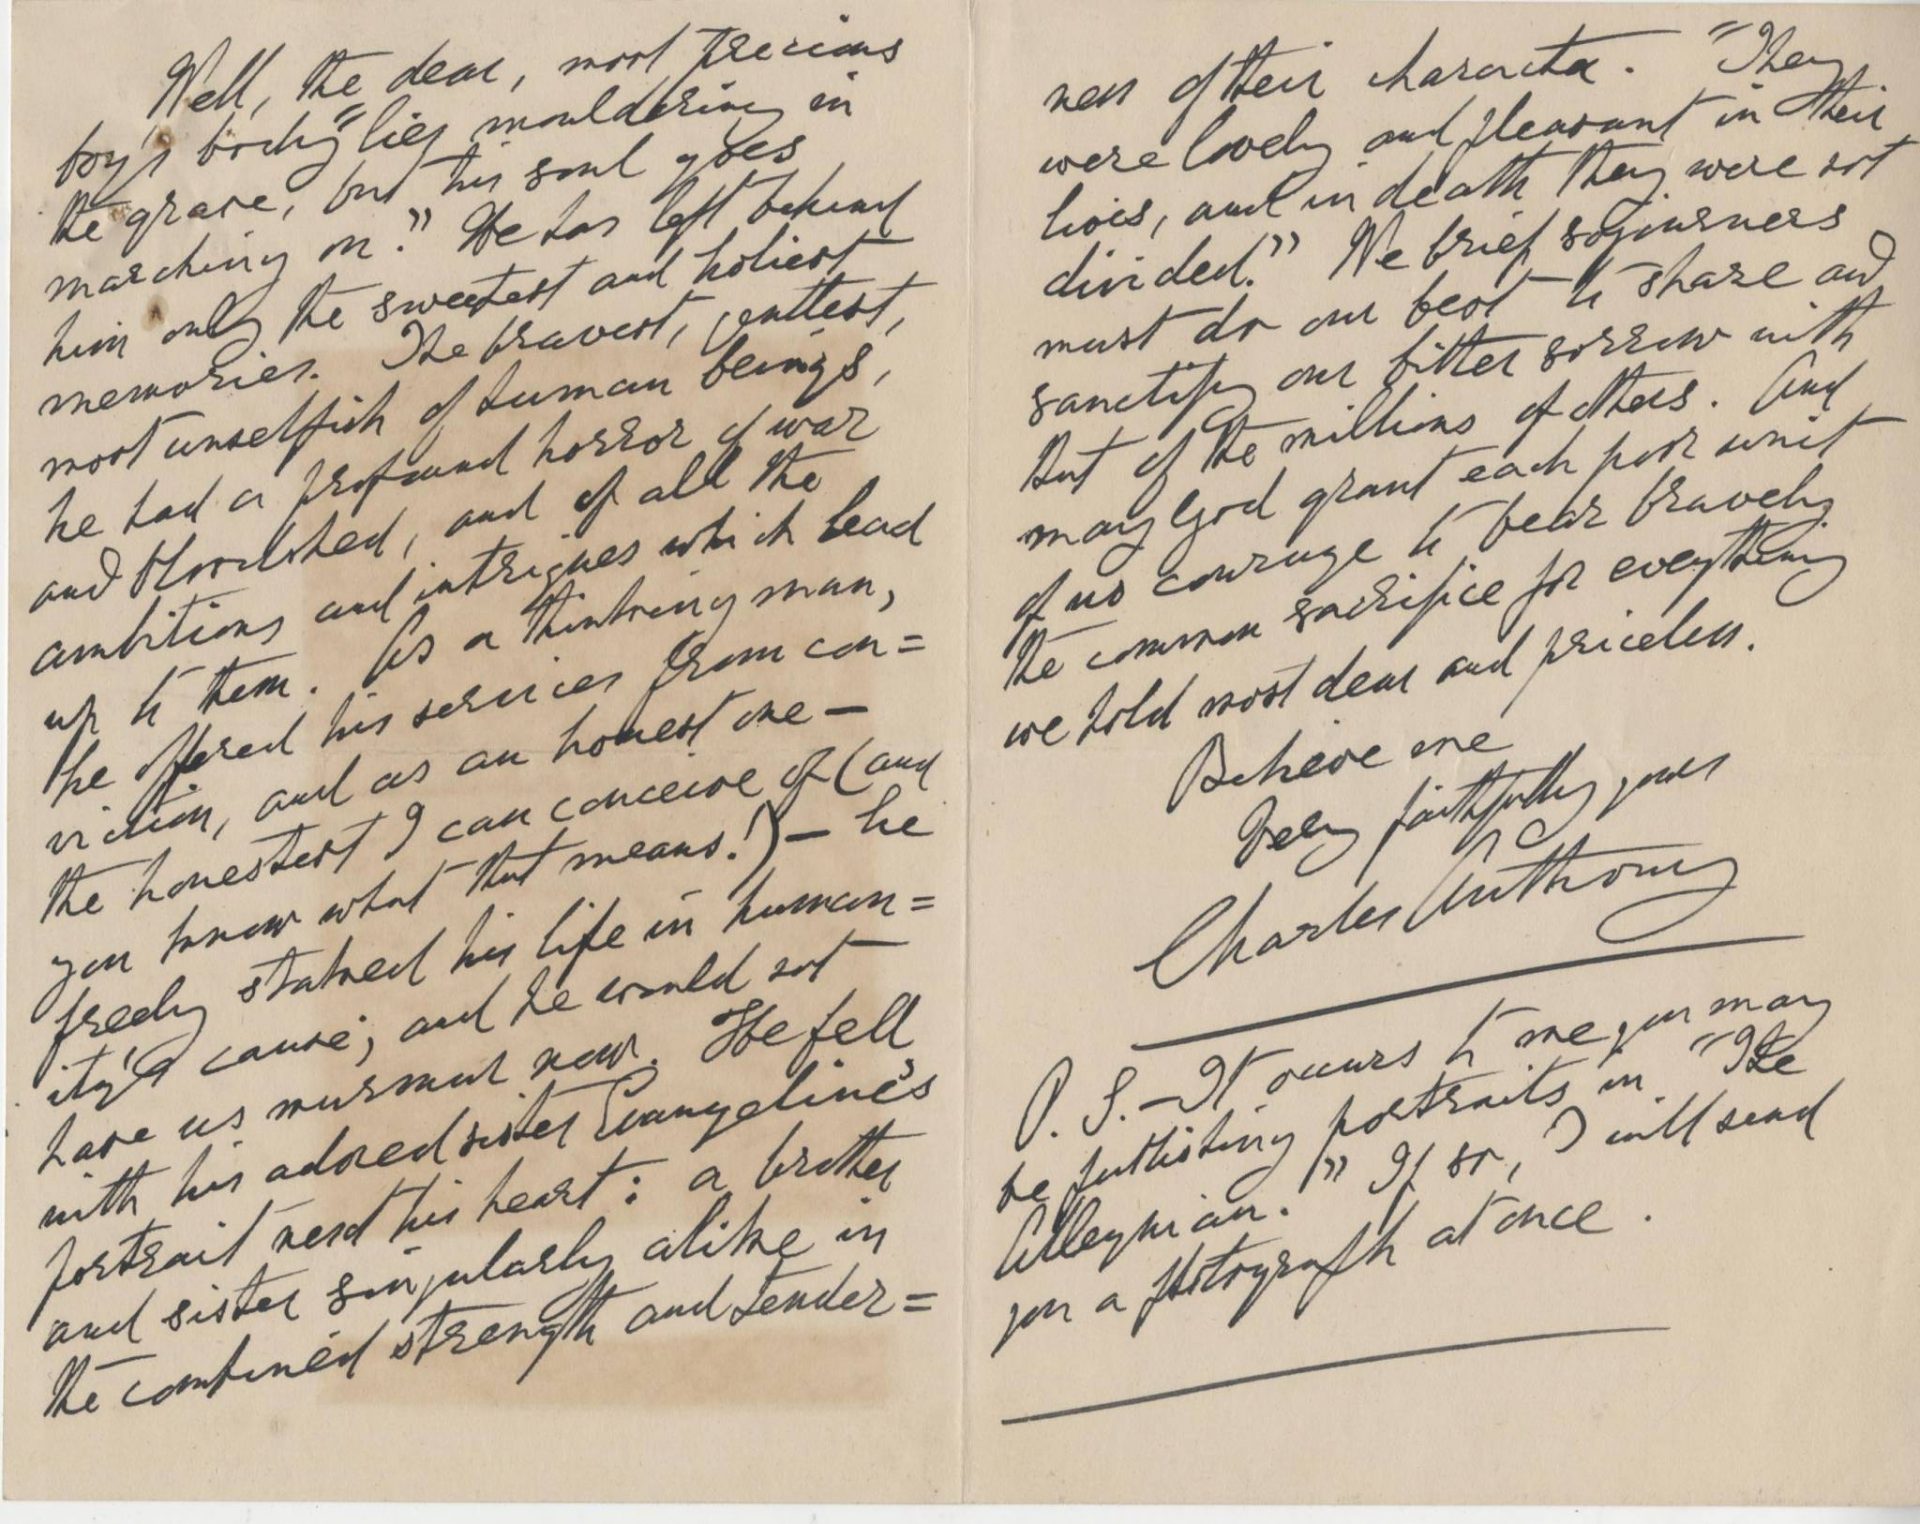 Well, the dear, most precious
boy's body "lies mouldering in
the grave, but his soul goes
marching on." He has left behind
him only the sweetest and holiest
memories. The bravest, gentlest,
most unselfish of human beings,
he had a profound horror of war
and bloodshed, and of all the
ambitions and intrigues which lead
up to them. As a thinking man,
he offered his services from con=
viction, and as an honest one —
the honestest I can conceive of (and
you know what that means!) — he
freely staked his life in human=
ity's cause; and he would not
have us murmur now. He fell
with his adored sister Evangeline's
portrait next his heart: a brother
and sister singularly alike in
the combined strength and tender=
ness of their character. "They
were lovely and pleasant in their
lives, and in death they were not
divided." We brief sojourners
must do our best to share and
sanctify our bitter sorrow with
that of the millions of others. And
may God grant each poor unit
of us courage to bear bravely
the common sacrifice for everything
we hold most dear and priceless.
Believe me
Very faithfully yours
Charles Anthony
P. S. — It occurs to me you may
be publishing portraits in "The
Alleynian." If so, I will send
you a photograph at once.